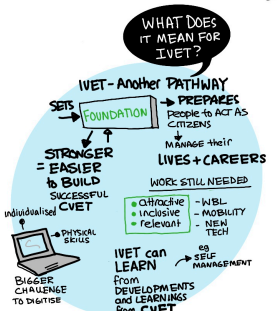 WHAT DOES
IT MEAN FOR
IVET?
IVET - ANOTHER PATHWAY
SETS
FOUNDATION
PREPARES
PEOPLE TO ACT AS
CITIZENS
MANAGE their
LIVES + CAREERS
STRONGER
= EASIER
to BUILD
SUCCESSFUL
CVET
WORK STILL NEEDED
• attractive
• inclusive
• relevant
- WBL
- MOBILITY
- NEW
TECH
individualised
• PHYSICAL
SKILLS
BIGGER
CHALLENGE
TO DIGITISE
IVET can
LEARN
from
DEVELOPMENTS
and LEARNINGS
from CVET
eg
SELF
MANAGEMENT